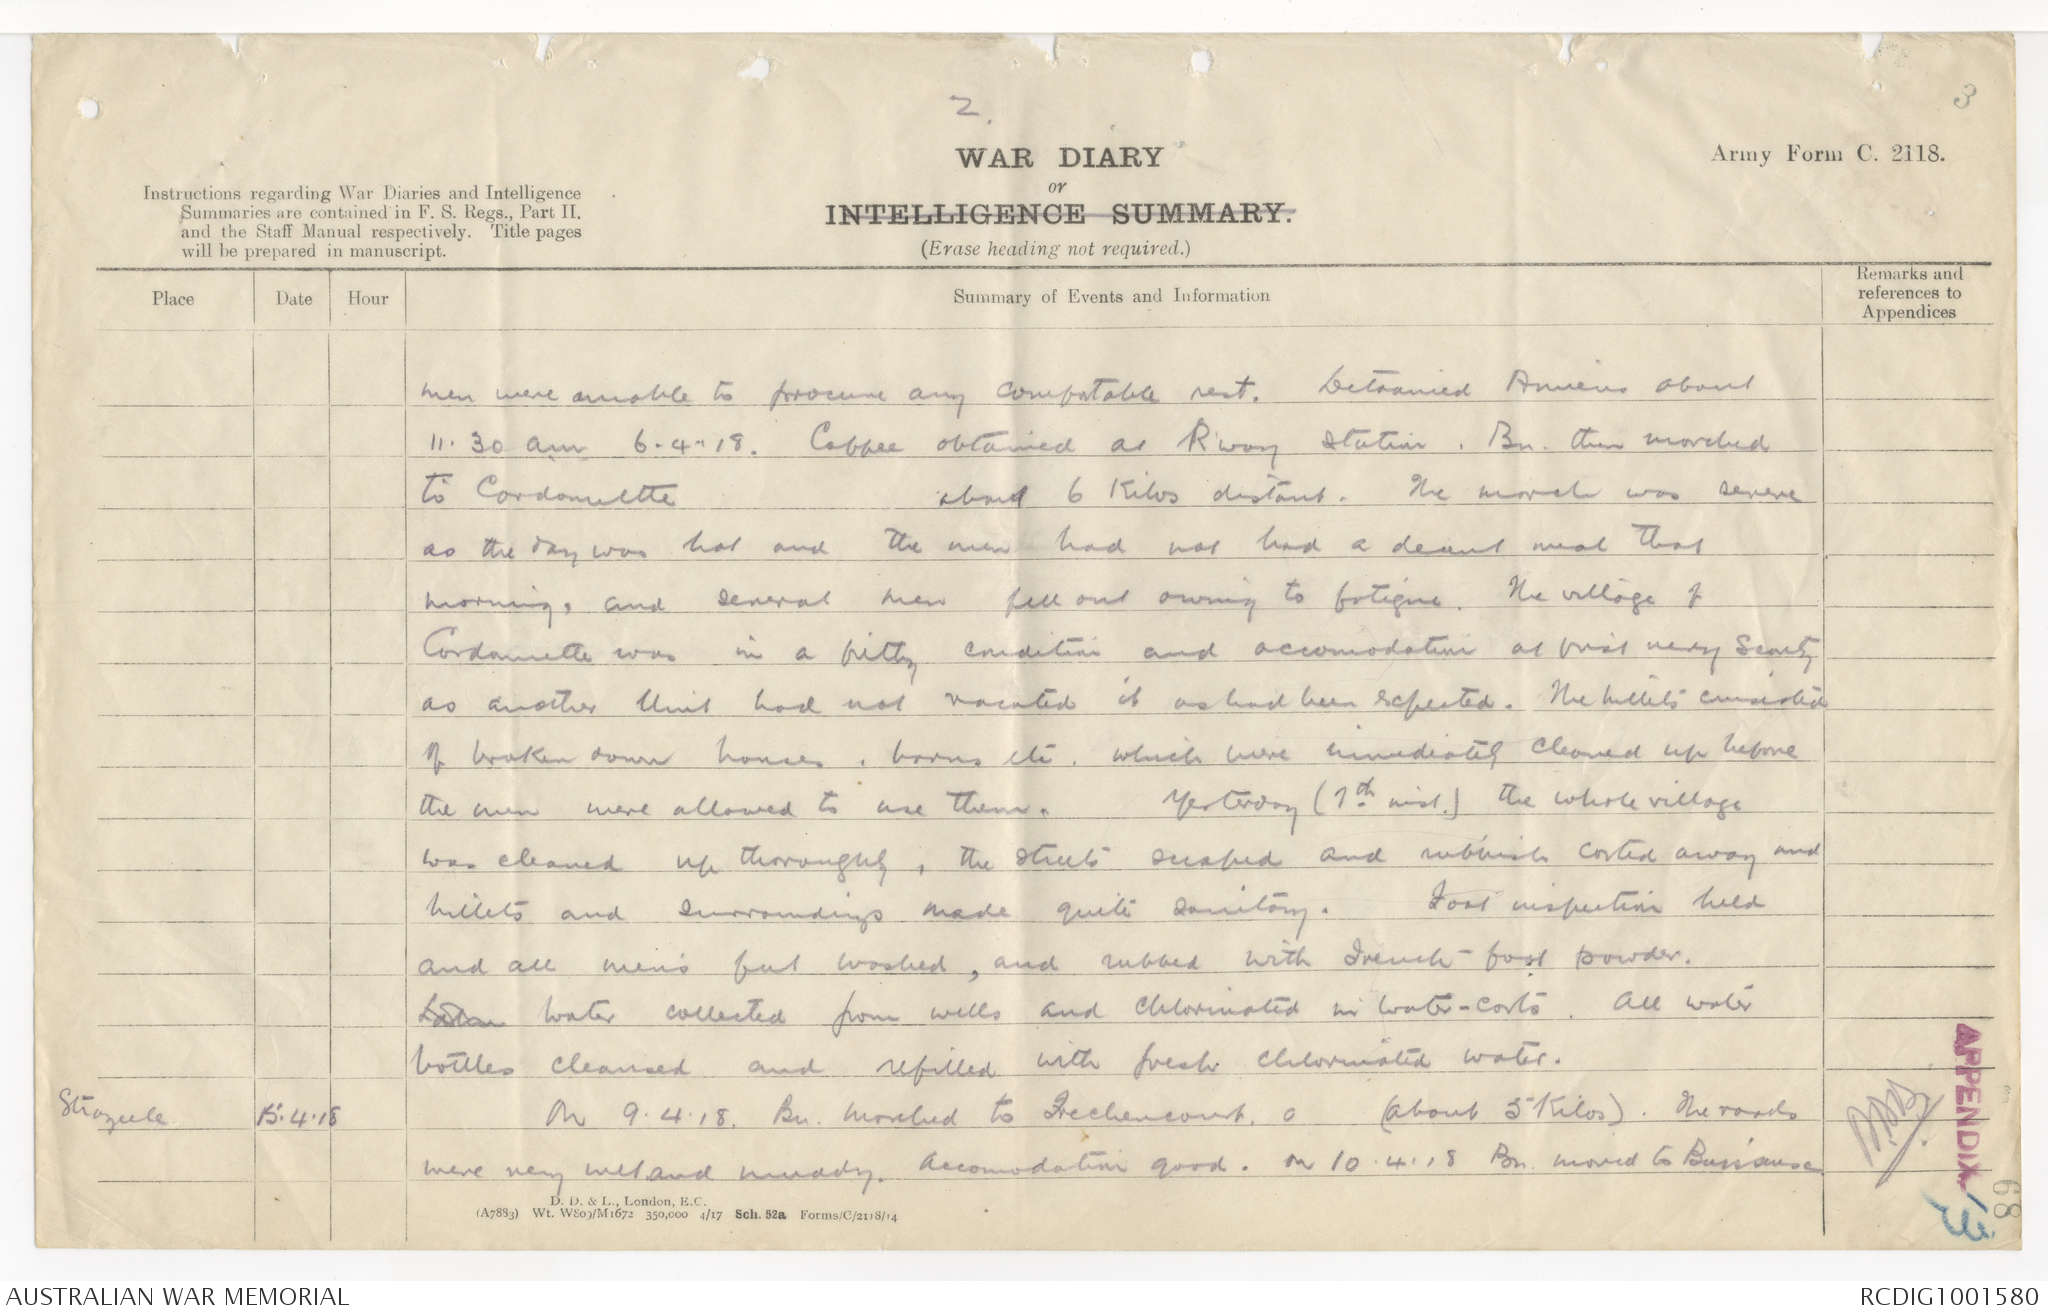 2.
3
WAR DIARY
or
INTELLIGENCE SUMMARY.
(Erase heading not required.)
Army Form C. 2118.
Instructions regarding War Diaries and Intelligence
Summaries are contained in F. S. Regs., Part II.
and the Staff Manual respectively. Title pages
will be prepared in manuscript.
Place
Date
Hour
Summary of Events and Information
Remarks and
references to
Appendices
men were unable to procure any comfortable rest. Detrained Amiens about
11.30 am 6.4.18. Coffee obtained at Rway Station. Bn. then marched
to Cardonnette about 6 Kilos distant. The march was severe
as the day was hot and the men had not had a decent meal that
morning, and several men fell out owing to fatigue. The village of
Cardonnette was in a filthy condition and accomodation at first very scanty
as another Unit had not vacated it as had been expected. The billets consisted
of broken down houses, barns etc. which were immediately cleaned up before
the men were allowed to use them. Yesterday (7th inst.) the whole village
was cleaned up thoroughly, the streets scraped and rubbish carted away and
billets and surroundings made quite sanitary. Foot inspection held
and all men's feet washed, and rubbed with French foot powder.
Water collected from wells and chlorinated in water-carts. All water
bottles cleansed and refilled with fresh chlorinated water.
Strazeele 15.4.18 On 9.4.18. Bn. marched to Frechencourt. (about 5 Kilos). The roads
were very wet and muddy. Accomodation good. On 10.4.18 Bn. moved to
APPENDIX
68
D. D. & L., London, E.C.
(A7883) Wt. W809/M1672 350,000 4/17 Sch. 52a Forms/C/2118/14
AUSTRALIAN WAR MEMORIAL
RCDIG1001580